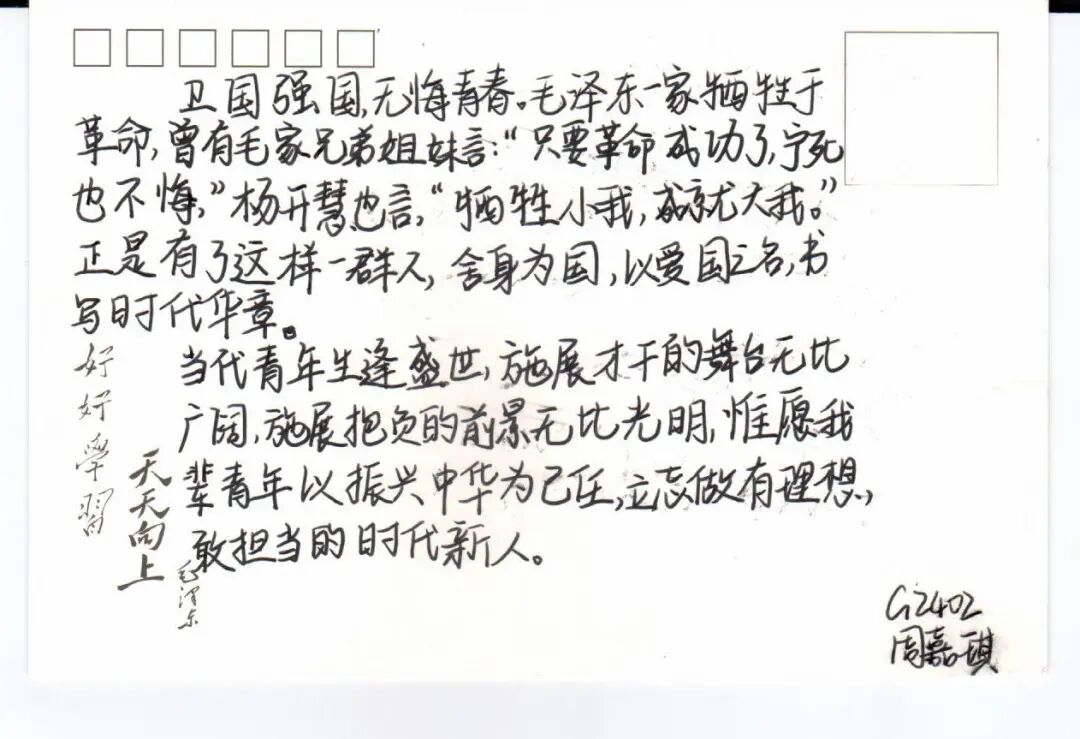 卫国强国,无悔青春。毛泽东一家牺牲于
革命,曾有毛家兄弟姐妹言:“只要革命成功了,宁死
也不悔,”杨开慧也言,“牺牲小我,成就大我。”
正是有了这样一群人,舍身为国,以爱国之名,书
写时代华章。
当代青年生逢盛世,施展才干的舞台无比
广阔,施展抱负的前景无比光明,惟愿我
辈青年以振兴中华为己任,立志做有理想,
敢担当的时代新人。
好好學習
天天向上
毛泽东
G2402
周嘉琪